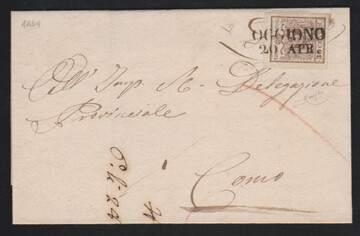 1854
OGGIONO
20 APR.
All' Imp. R. Delegazione
Provinciale
Como